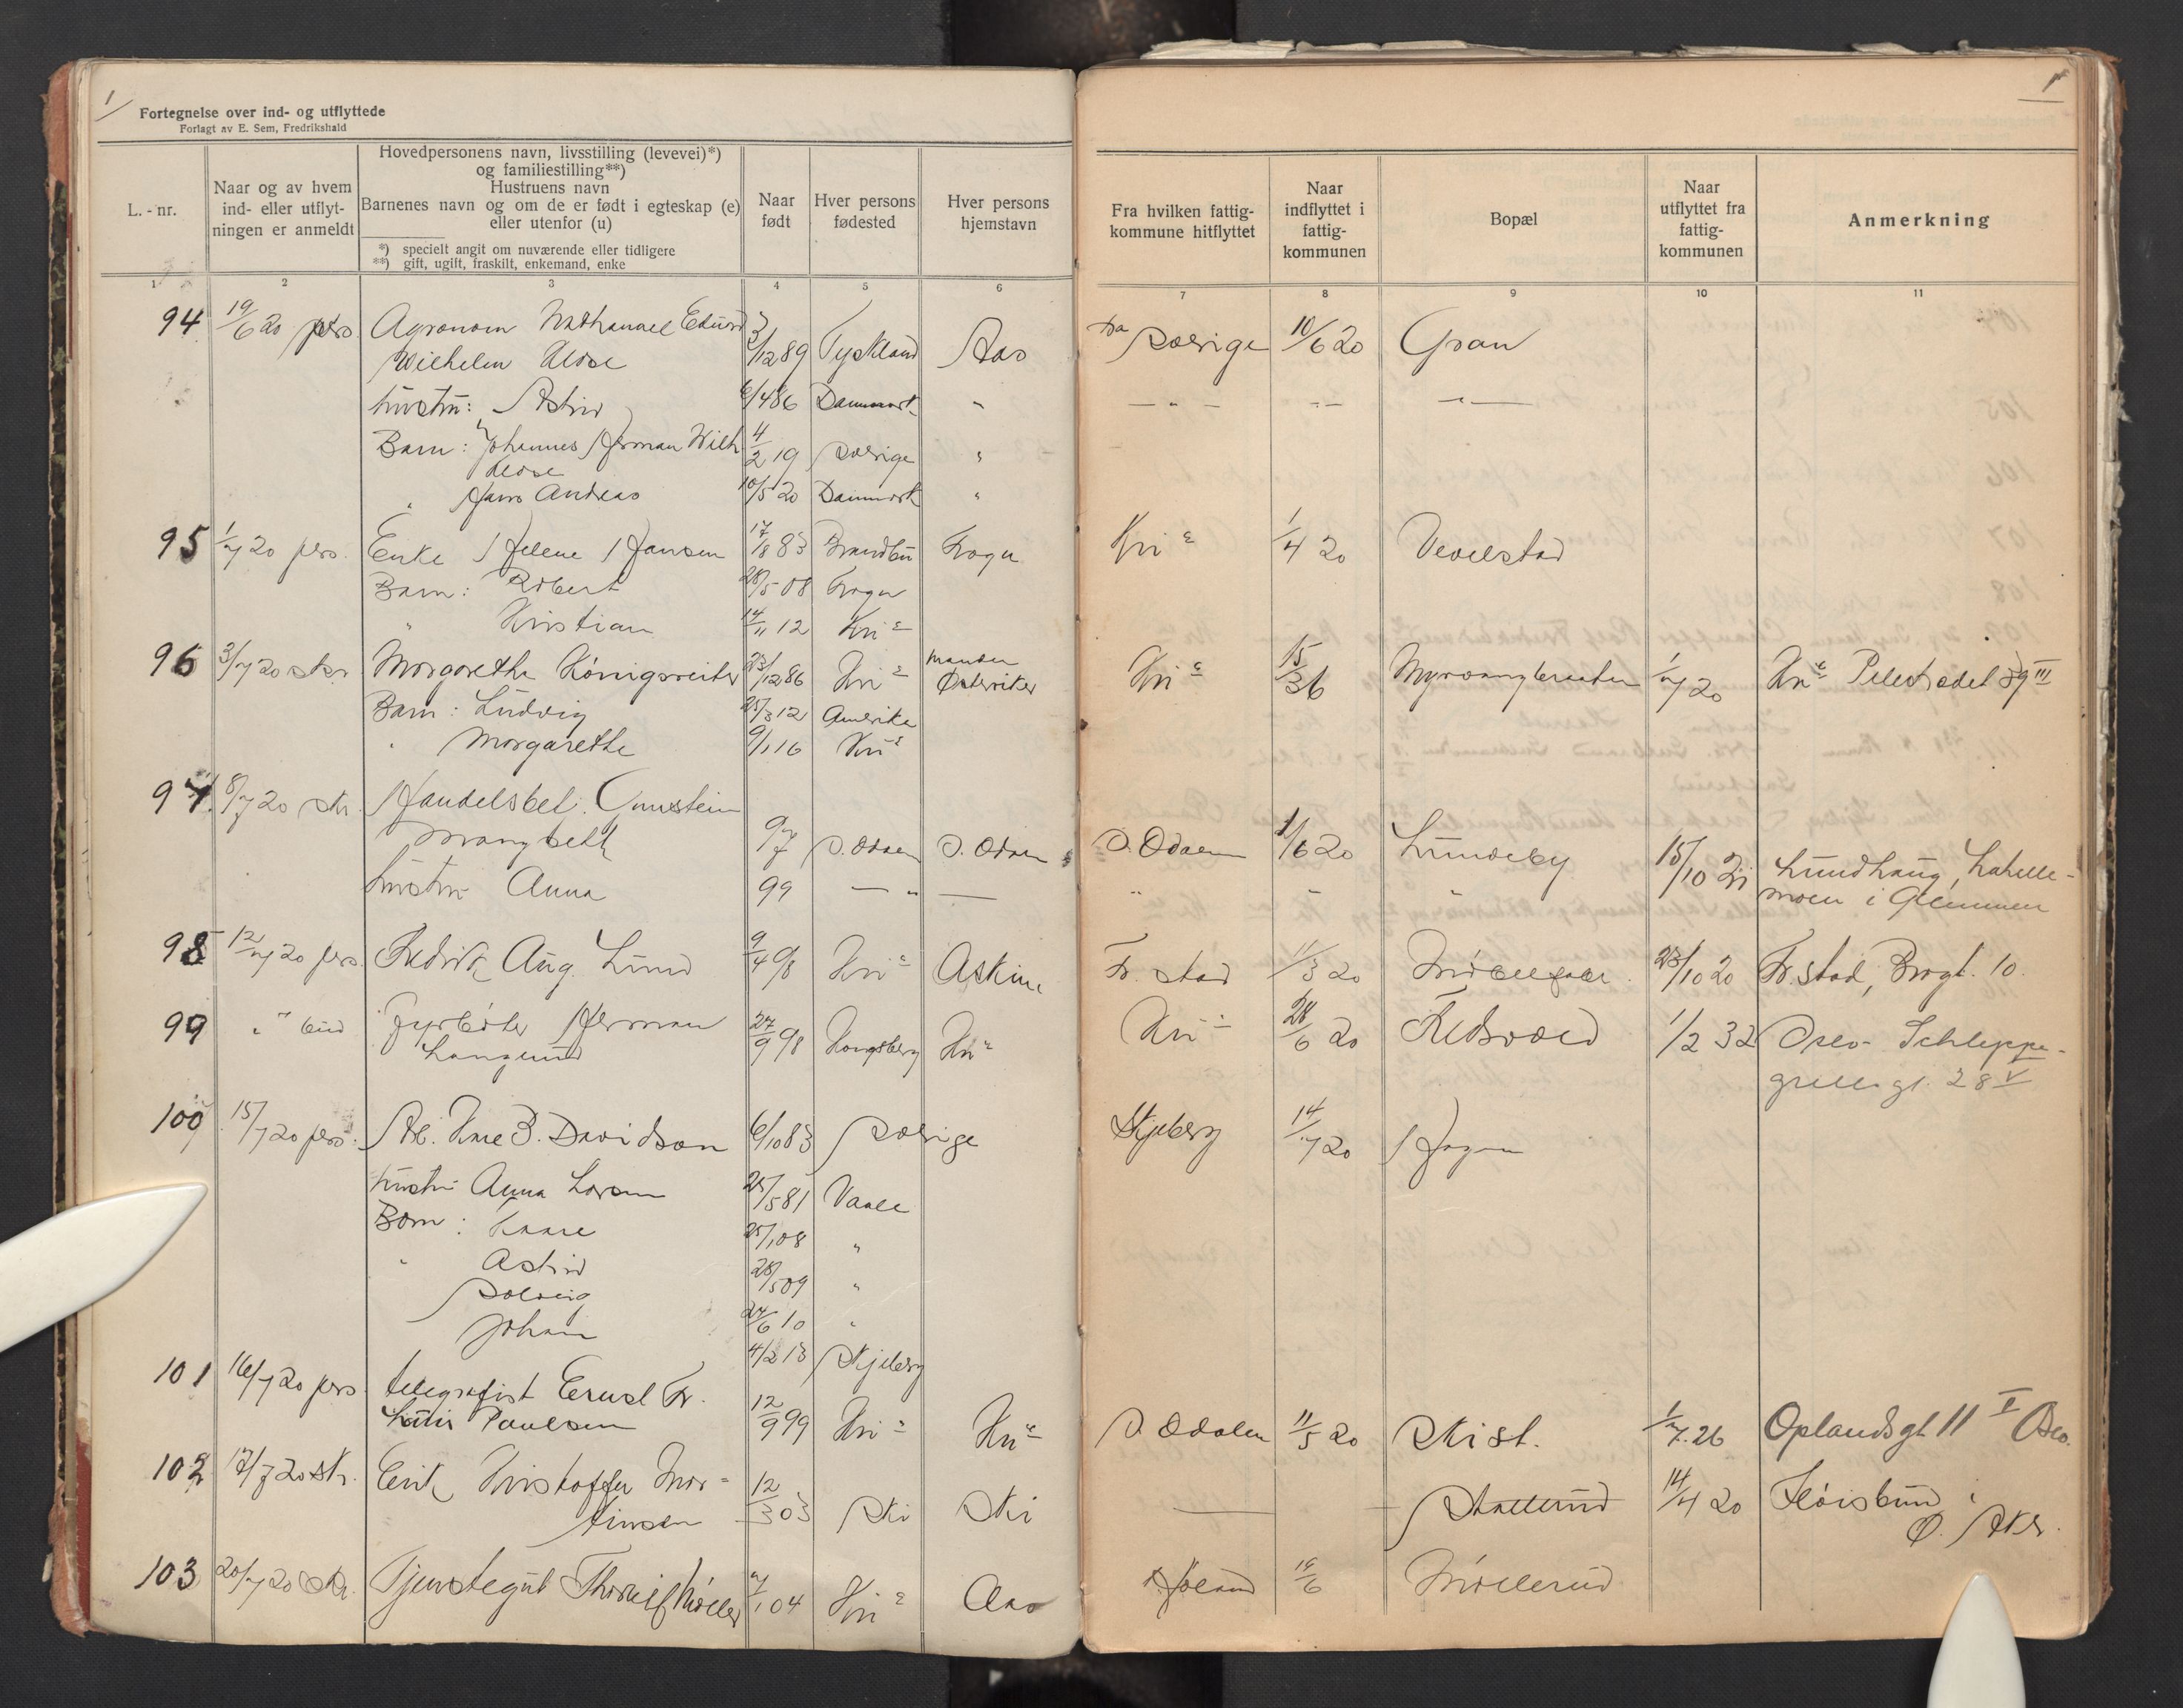 1/
Fortegnelse over ind- og utflyttede
Forlagt av E. Sem, Fredrikshald
L. - nr.
Naar og av hvem ind- eller utflyt- ningen er anmeldt
Hovedpersonens navn, livsstilling (levevei)*)
og familiestilling**)
Hustruens navn
Barnenes navn og om de er født i egteskap (e)
eller utenfor (u)
*) specielt angit om nuværende eller tidligere
**) gift, ugift, fraskilt, enkemand, enke
Naar født
Hver persons fødested
Hver persons hjemstavn
Fra hvilken fattig- kommune hitflyttet
Naar indflyttet i fattig- kommunen
Bopæl
Naar utflyttet fra fattig- kommunen
Anmerkning
1 2 3 4 5 6 7 8 9 10 11
94 19/6 20 pers. Agronom Nathanael Eduard
Wilhelm Klose 3/12 89 Tyskland Aas fra Sverige 10/6 20 Gran
hustru: Astrid 6/4 86 Danmark " — " — " — — " —
Barn: Johannes Herman Wilh. 4/2 19 Sverige "
Klose
" Hans Andreas 10/5 20 Danmark "
95 1/7 20 pers. Enke Helene Hansen 17/8 83 Brandbu Frogn Kri a 1/4 20 Vevelstad
Barn: Robert 28/5 08 Frogn
" Kristian 14/11 12 Kri a
96 3/7 20 skr. Margarethe Königsreiter 23/12 86 Kri a manden Østeriker Kri a 15/3 6 1/7 20 Kr a Pilestrædet 39 III
Barn: Ludvig 25/3 12 Amerika
" Margarethe 9/1 16 Kri a
97 8/7 20 skr. Handelsbet. Gunstein
Mangbeth 97 S. Odalen S. Odalen S. Odalen 1/6 20 Lundeby 15/10 21 Lundhaug, Lahelle-
hustru Anna 99 — " — " " " moen i Glemmen
98 12/7 20 pers. Fredrik Aug. Lund 9/4 98 Kri a Askim Fr. stad 1/3 20 23/10 20 Fr.stad, Brogt. 10.
99 " bud Fyrbøter Herman 27/9 98 Kongsberg Kr a Kri a 28/6 20 Kedsvold 1/2 32 Oslo Schleppe-
Langrund grellsgt. 28 V
100 15/7 20 pers. Arb. Kare B. Davidson 6/10 83 Sverige Skjeberg 14/7 20 Hagen
hustru Anna Larsen 25/5 81 Vaale
Barn: Kaare 25/1 08 "
" Astrid 28/5 09 "
Solveig 24/6 10 "
Johan 4/2 13 Skjeberg
101 16/7 20 pers. telegrafist Ernst Fr.
Louis Paulsen 12/9 99 Kri a Kr a S. Odalen 11/5 20 Ski st. 1/7.26 Oplandsgt 11 I Oslo.
102 17/7 20 skr. Erik Kristoffer Mor-
tinsen 12/3 03 Ski Ski — Skollerud 14/4 20 Fløisbund i
Ø. Aker.
103 20/7 20 skr. Tjenstegut Thorleif Møller 7/1 04 Kri a Aas Høland 15/6 Møllerud